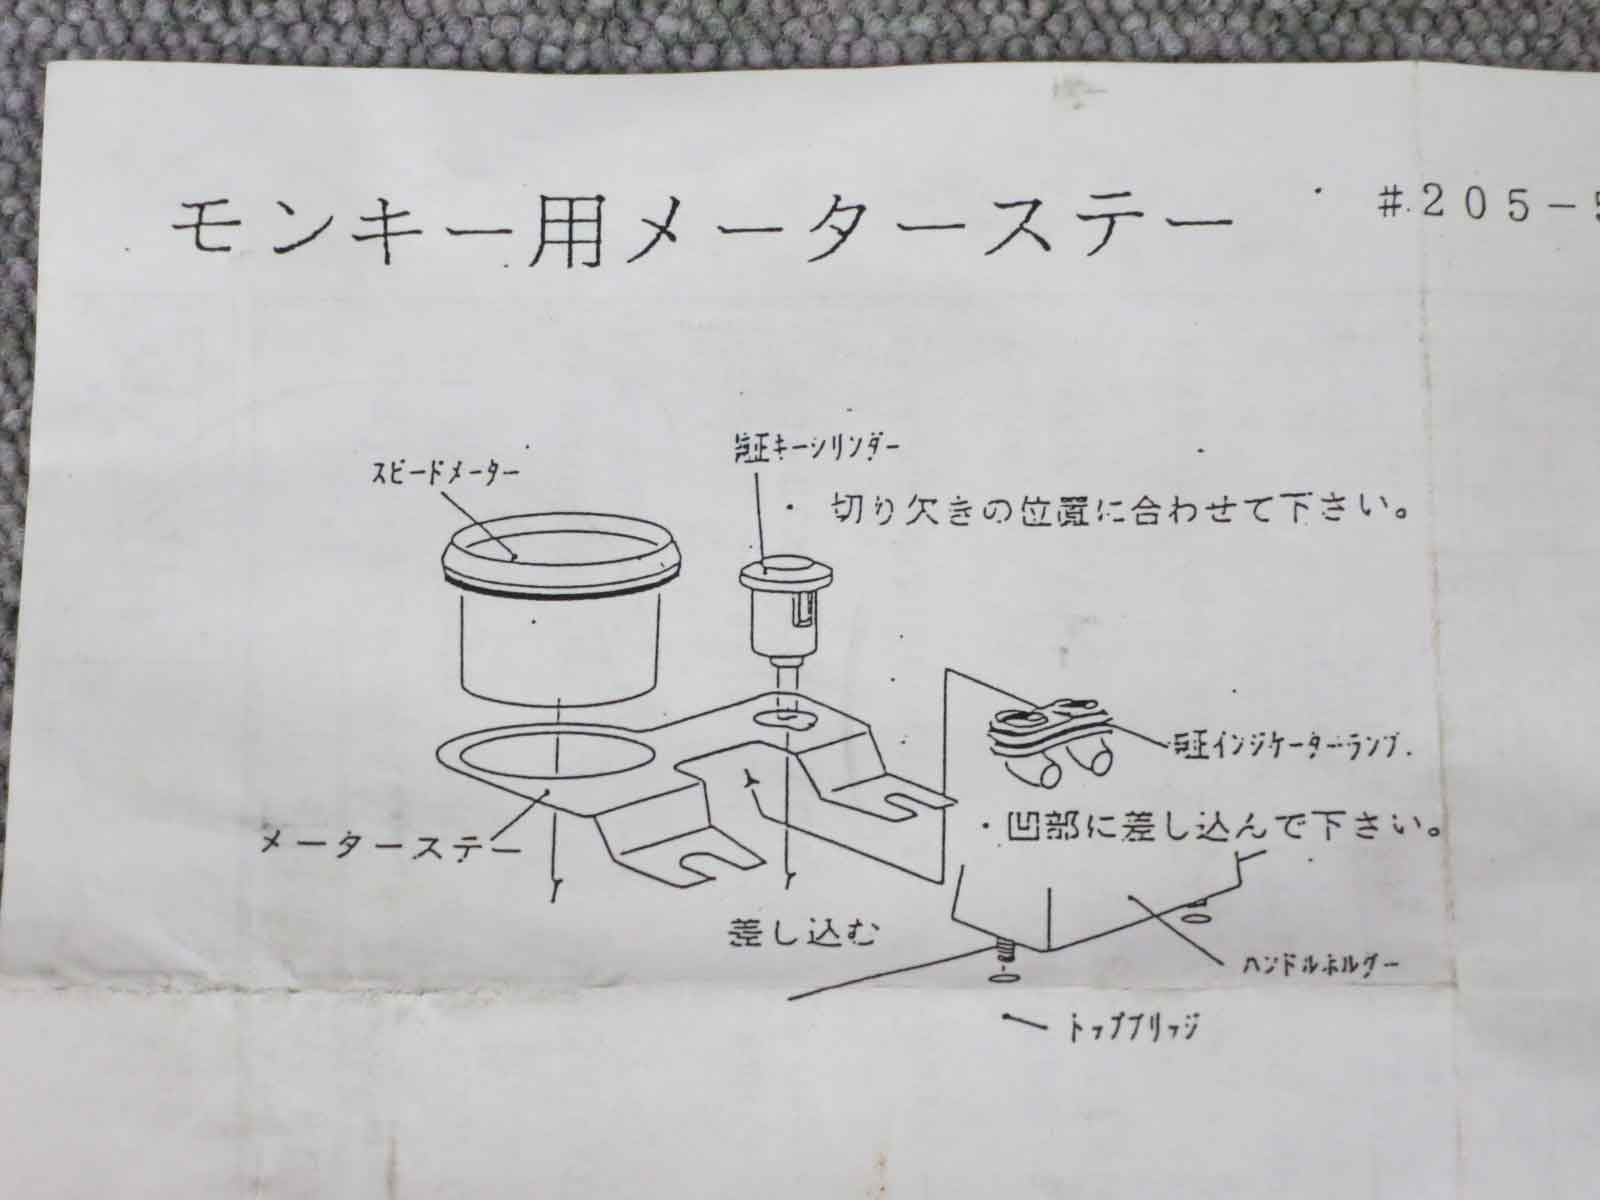 モンキー用メーターステー
#205-
スピードメーター
純正キーシリンダー
・ 切り欠きの位置に合わせて下さい。
純正インジケーターランプ
メーターステー
・凹部に差し込んで下さい。
差し込む
ハンドルホルダー
トップブリッジ